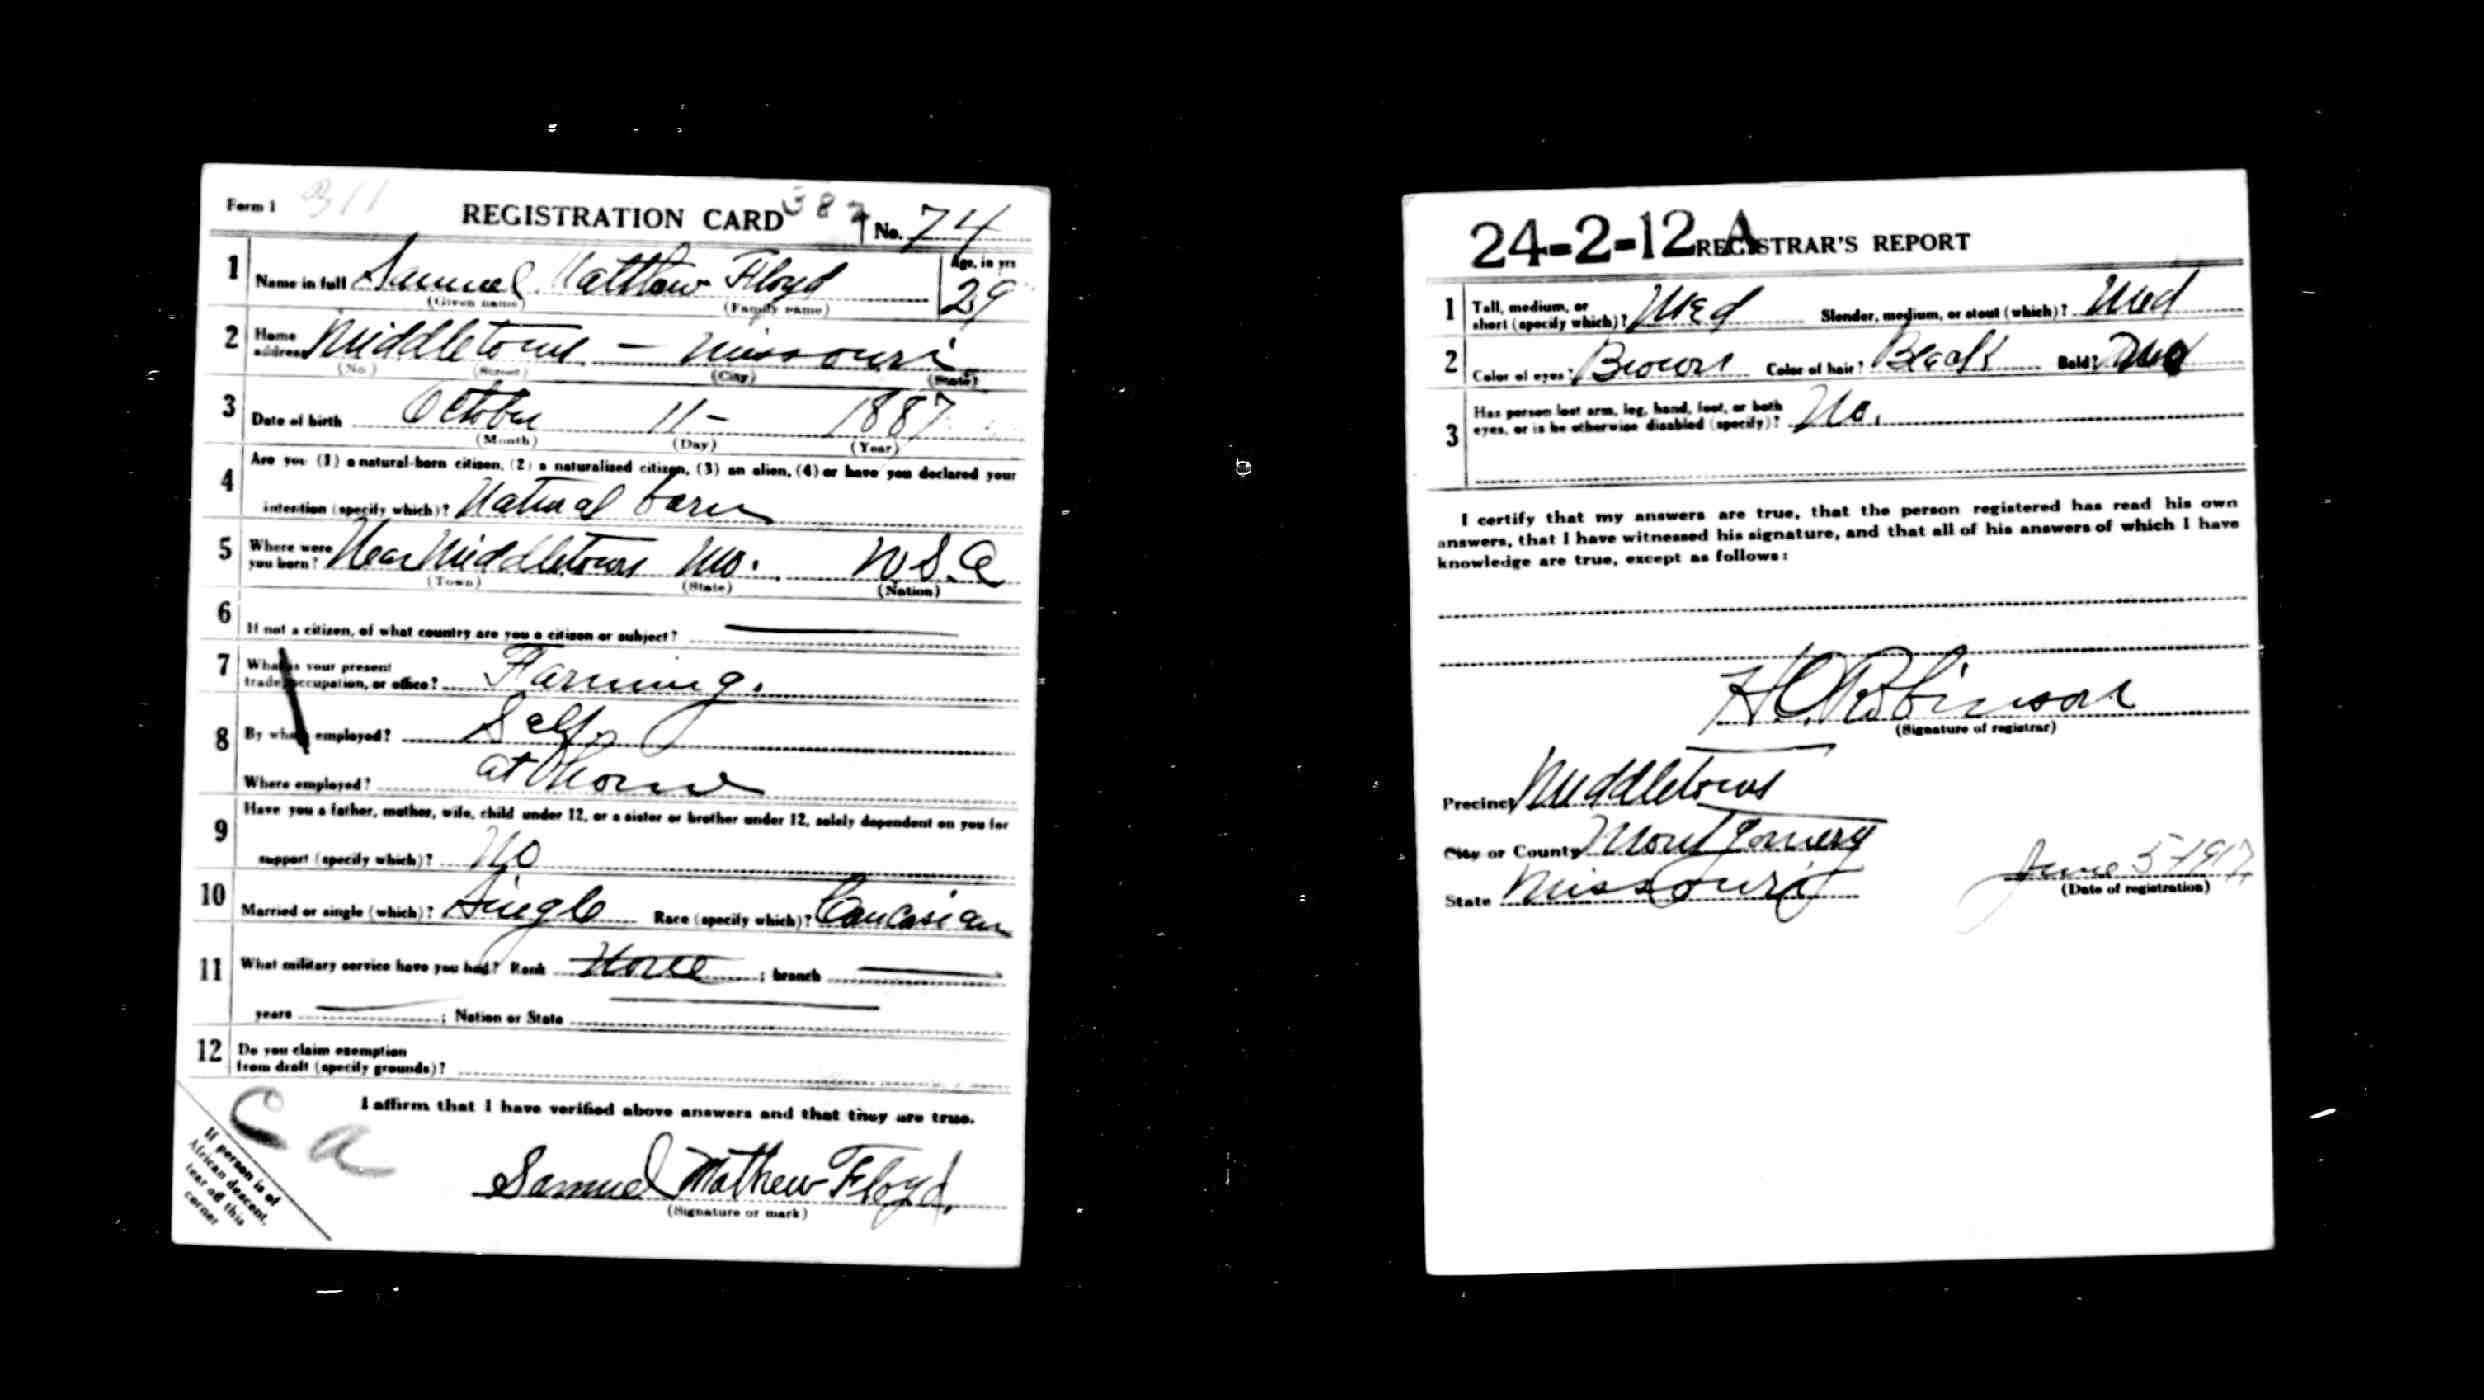 Form 1 311 REGISTRATION CARD 387 No. 74
1 Name in full Samuel Matthew Floyd Age, in yrs 29
(Given name) (Family name)
2 Home address Middletown - Missouri
(No.) (Street) (City) (State)
3 Date of birth October 11 - 1887
(Month) (Day) (Year)
4 Are you (1) a natural-born citizen, (2) a naturalized citizen, (3) an alien, (4) or have you declared your
intention (specify which)? Natural born
5 Where were you born? Near Middletown Mo. U.S.A
(Town) (State) (Nation)
6 If not a citizen, of what country are you a citizen or subject?
7 What is your present
trade, occupation, or office? Farming.
8 By whom employed? Self
Where employed? at home
9 Have you a father, mother, wife, child under 12, or a sister or brother under 12, solely dependent on you for
support (specify which)? No
10 Married or single (which)? Single Race (specify which)? Caucasian
11 What military service have you had? Rank None ; branch
years ; Nation or State
12 Do you claim exemption
from draft (specify grounds)?
I affirm that I have verified above answers and that they are true.
Ca
If person is of
African descent,
tear off this
corner
Samuel Mathew Floyd,
(Signature or mark)
24-2-12 A REGISTRAR'S REPORT
1 Tall, medium, or
short (specify which)? Med Slender, medium, or stout (which)? Med
2 Color of eyes? Brown Color of hair? Black Bald?
3 Has person lost arm, leg, hand, foot, or both
eyes, or is he otherwise disabled (specify)? No.
I certify that my answers are true, that the person registered has read his own
answers, that I have witnessed his signature, and that all of his answers of which I have
knowledge are true, except as follows:
H.O. Robinson
(Signature of registrar)
Precinct Middletown
City or County Montgomery
State Missouri June 5-1917
(Date of registration)